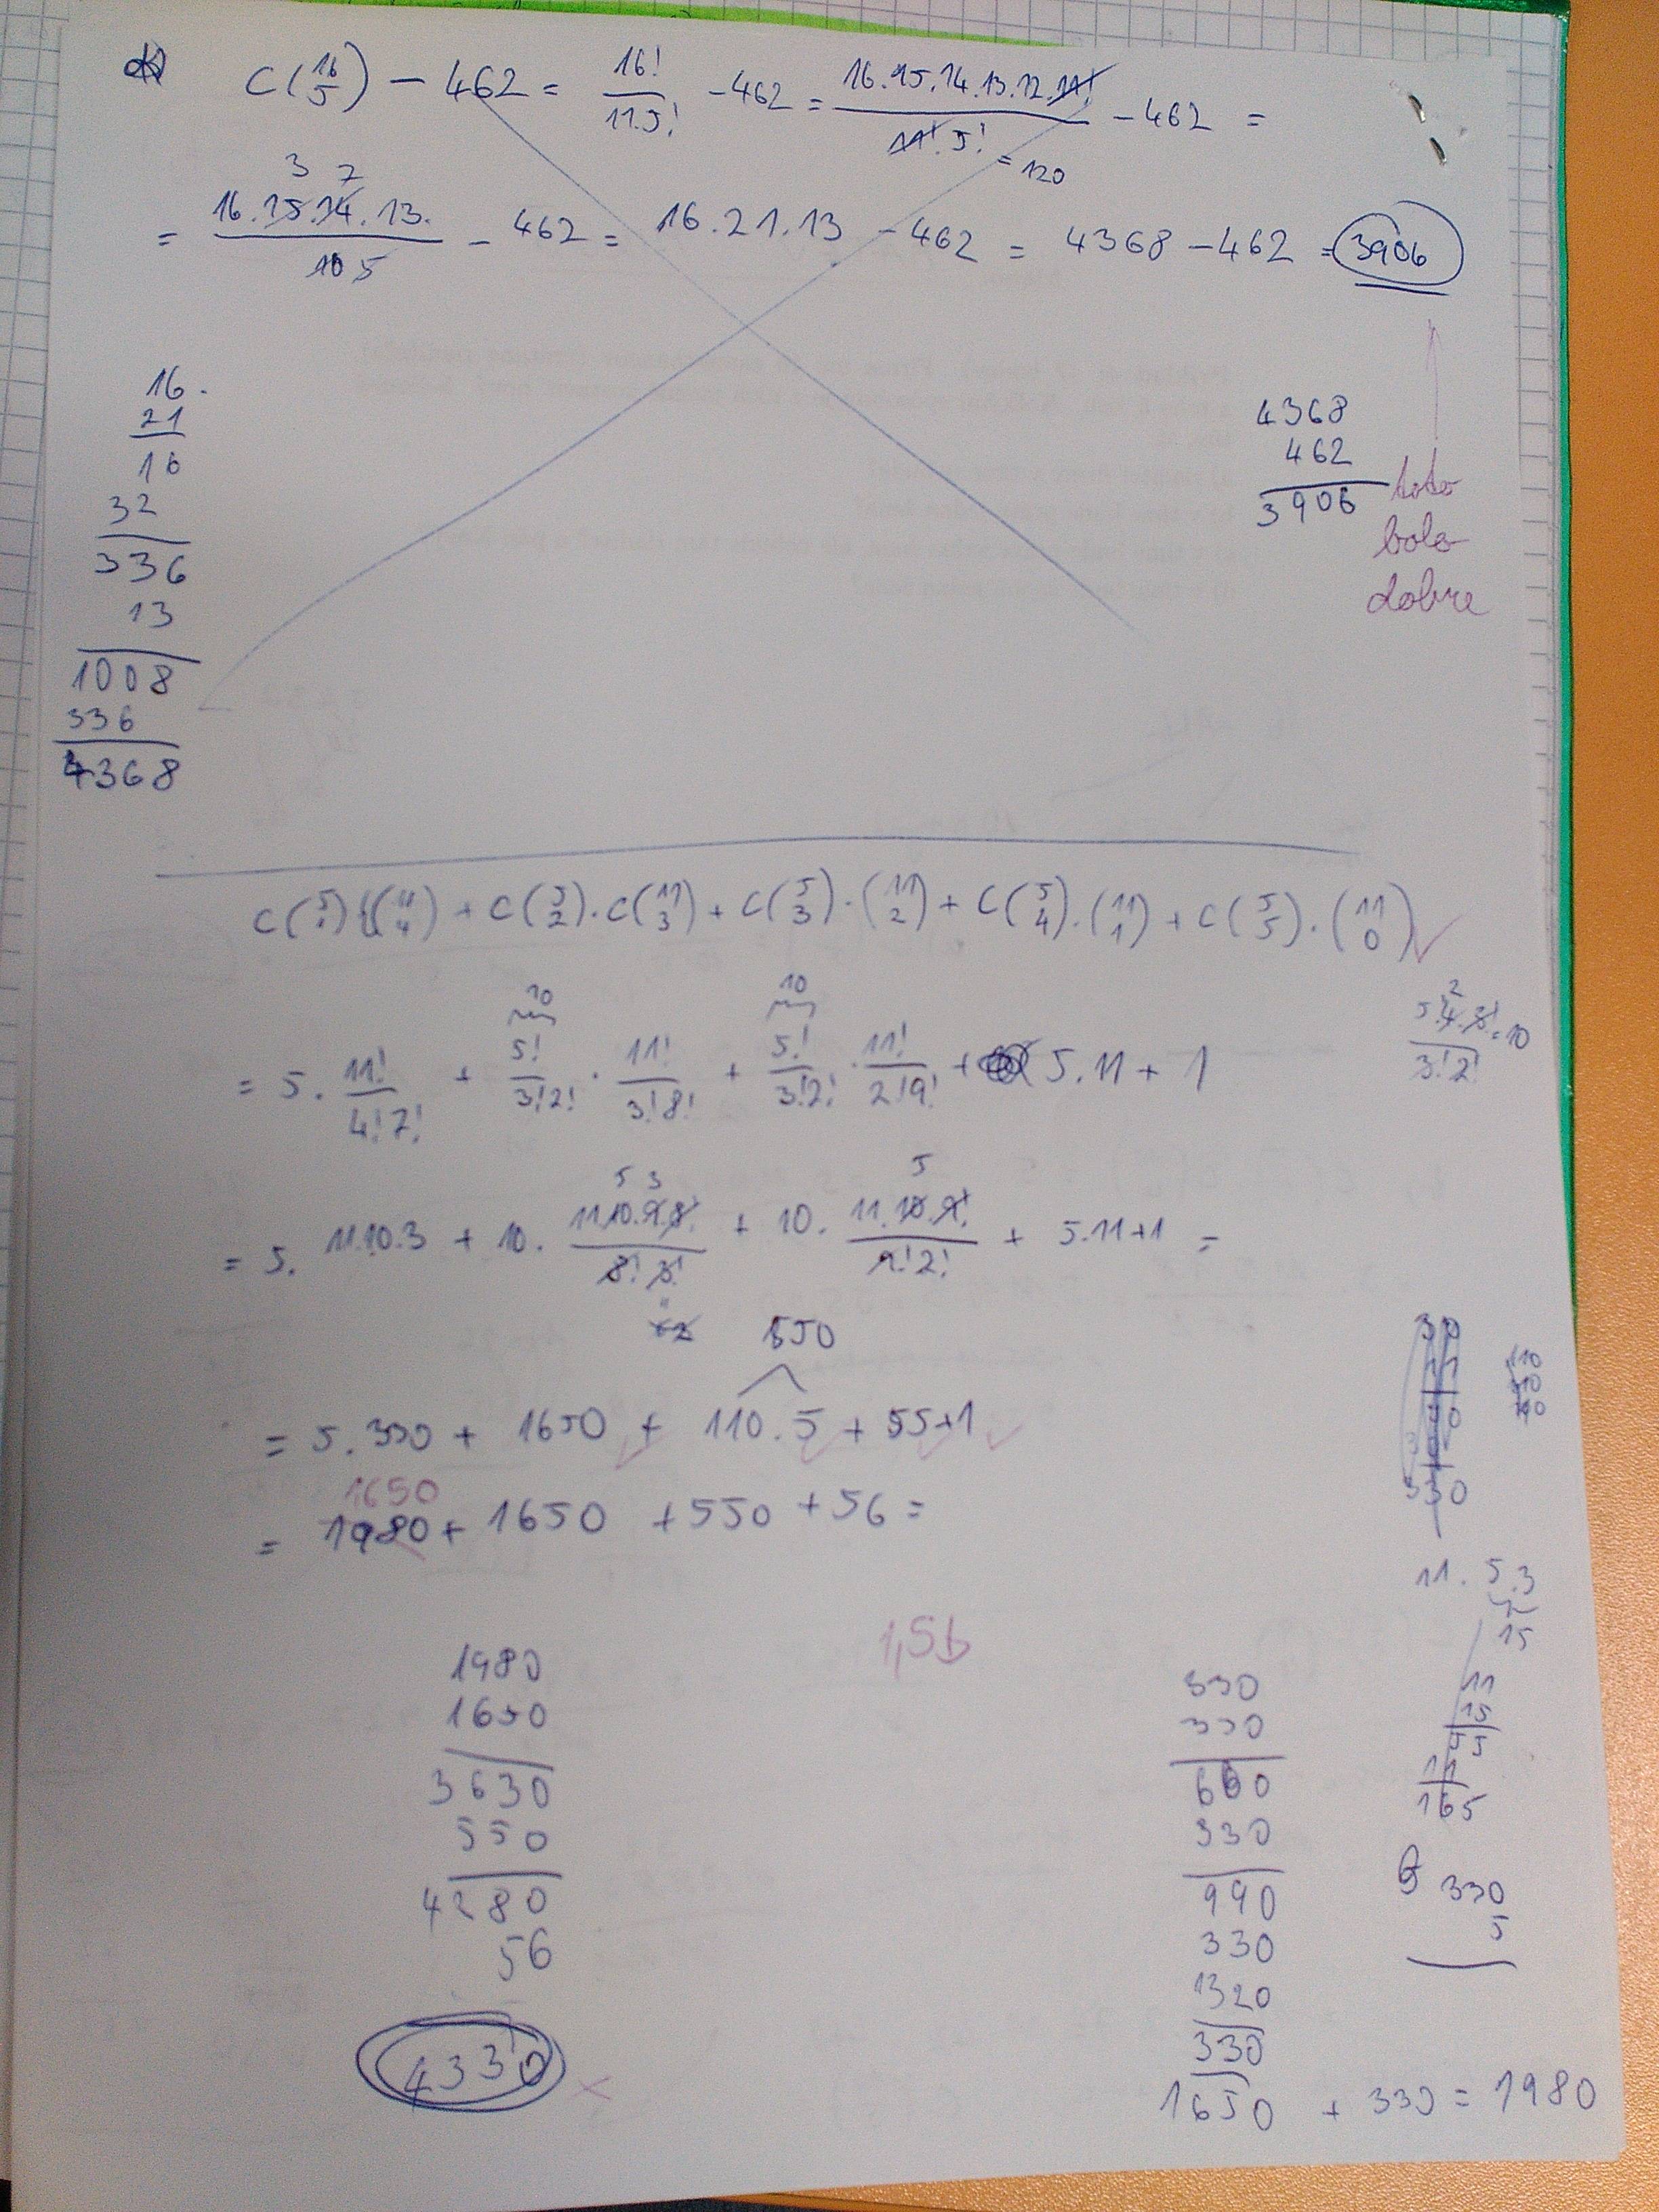 C(16 5) - 462 = 16!/11.5! - 462 = 16.15.14.13.12.11!/11! 5! - 462 =
= 120
3 7
= 16.15.14.13./10 5 - 462 = 16.21.13 - 462 = 4368 - 462 = 3906
16.
21
16
32
336
13
1008
336
4368
4368
462
3906
toto
bolo
dobre
C(5 1)(11 4) + C(5 2).C(11 3) + C(5 3).(11 2) + C(5 4).(11 1) + C(5 5).(11 0)
10 10
= 5. 11!/4!7! + 5!/3!2! . 11!/3!8! + 5!/3!2! . 11!/2!9! + 5.11 + 1
2
5.4.3!/3!2! = 10
5 3 5
= 5. 11.10.3 + 10. 11.10.9.8!/8! 3! + 10. 11.10.9!/9!2! + 5.11+1 =
550
= 5.330 + 1650 + 110.5 + 55+1
1650
= 1980 + 1650 + 550 + 56 =
330
11. 5.3
15
11
15
55
11
165
1,5b
1980
1650
3630
550
4280
56
4330
330
330
660
330
990
330
1320
330
1650 + 330 = 1980
330
5